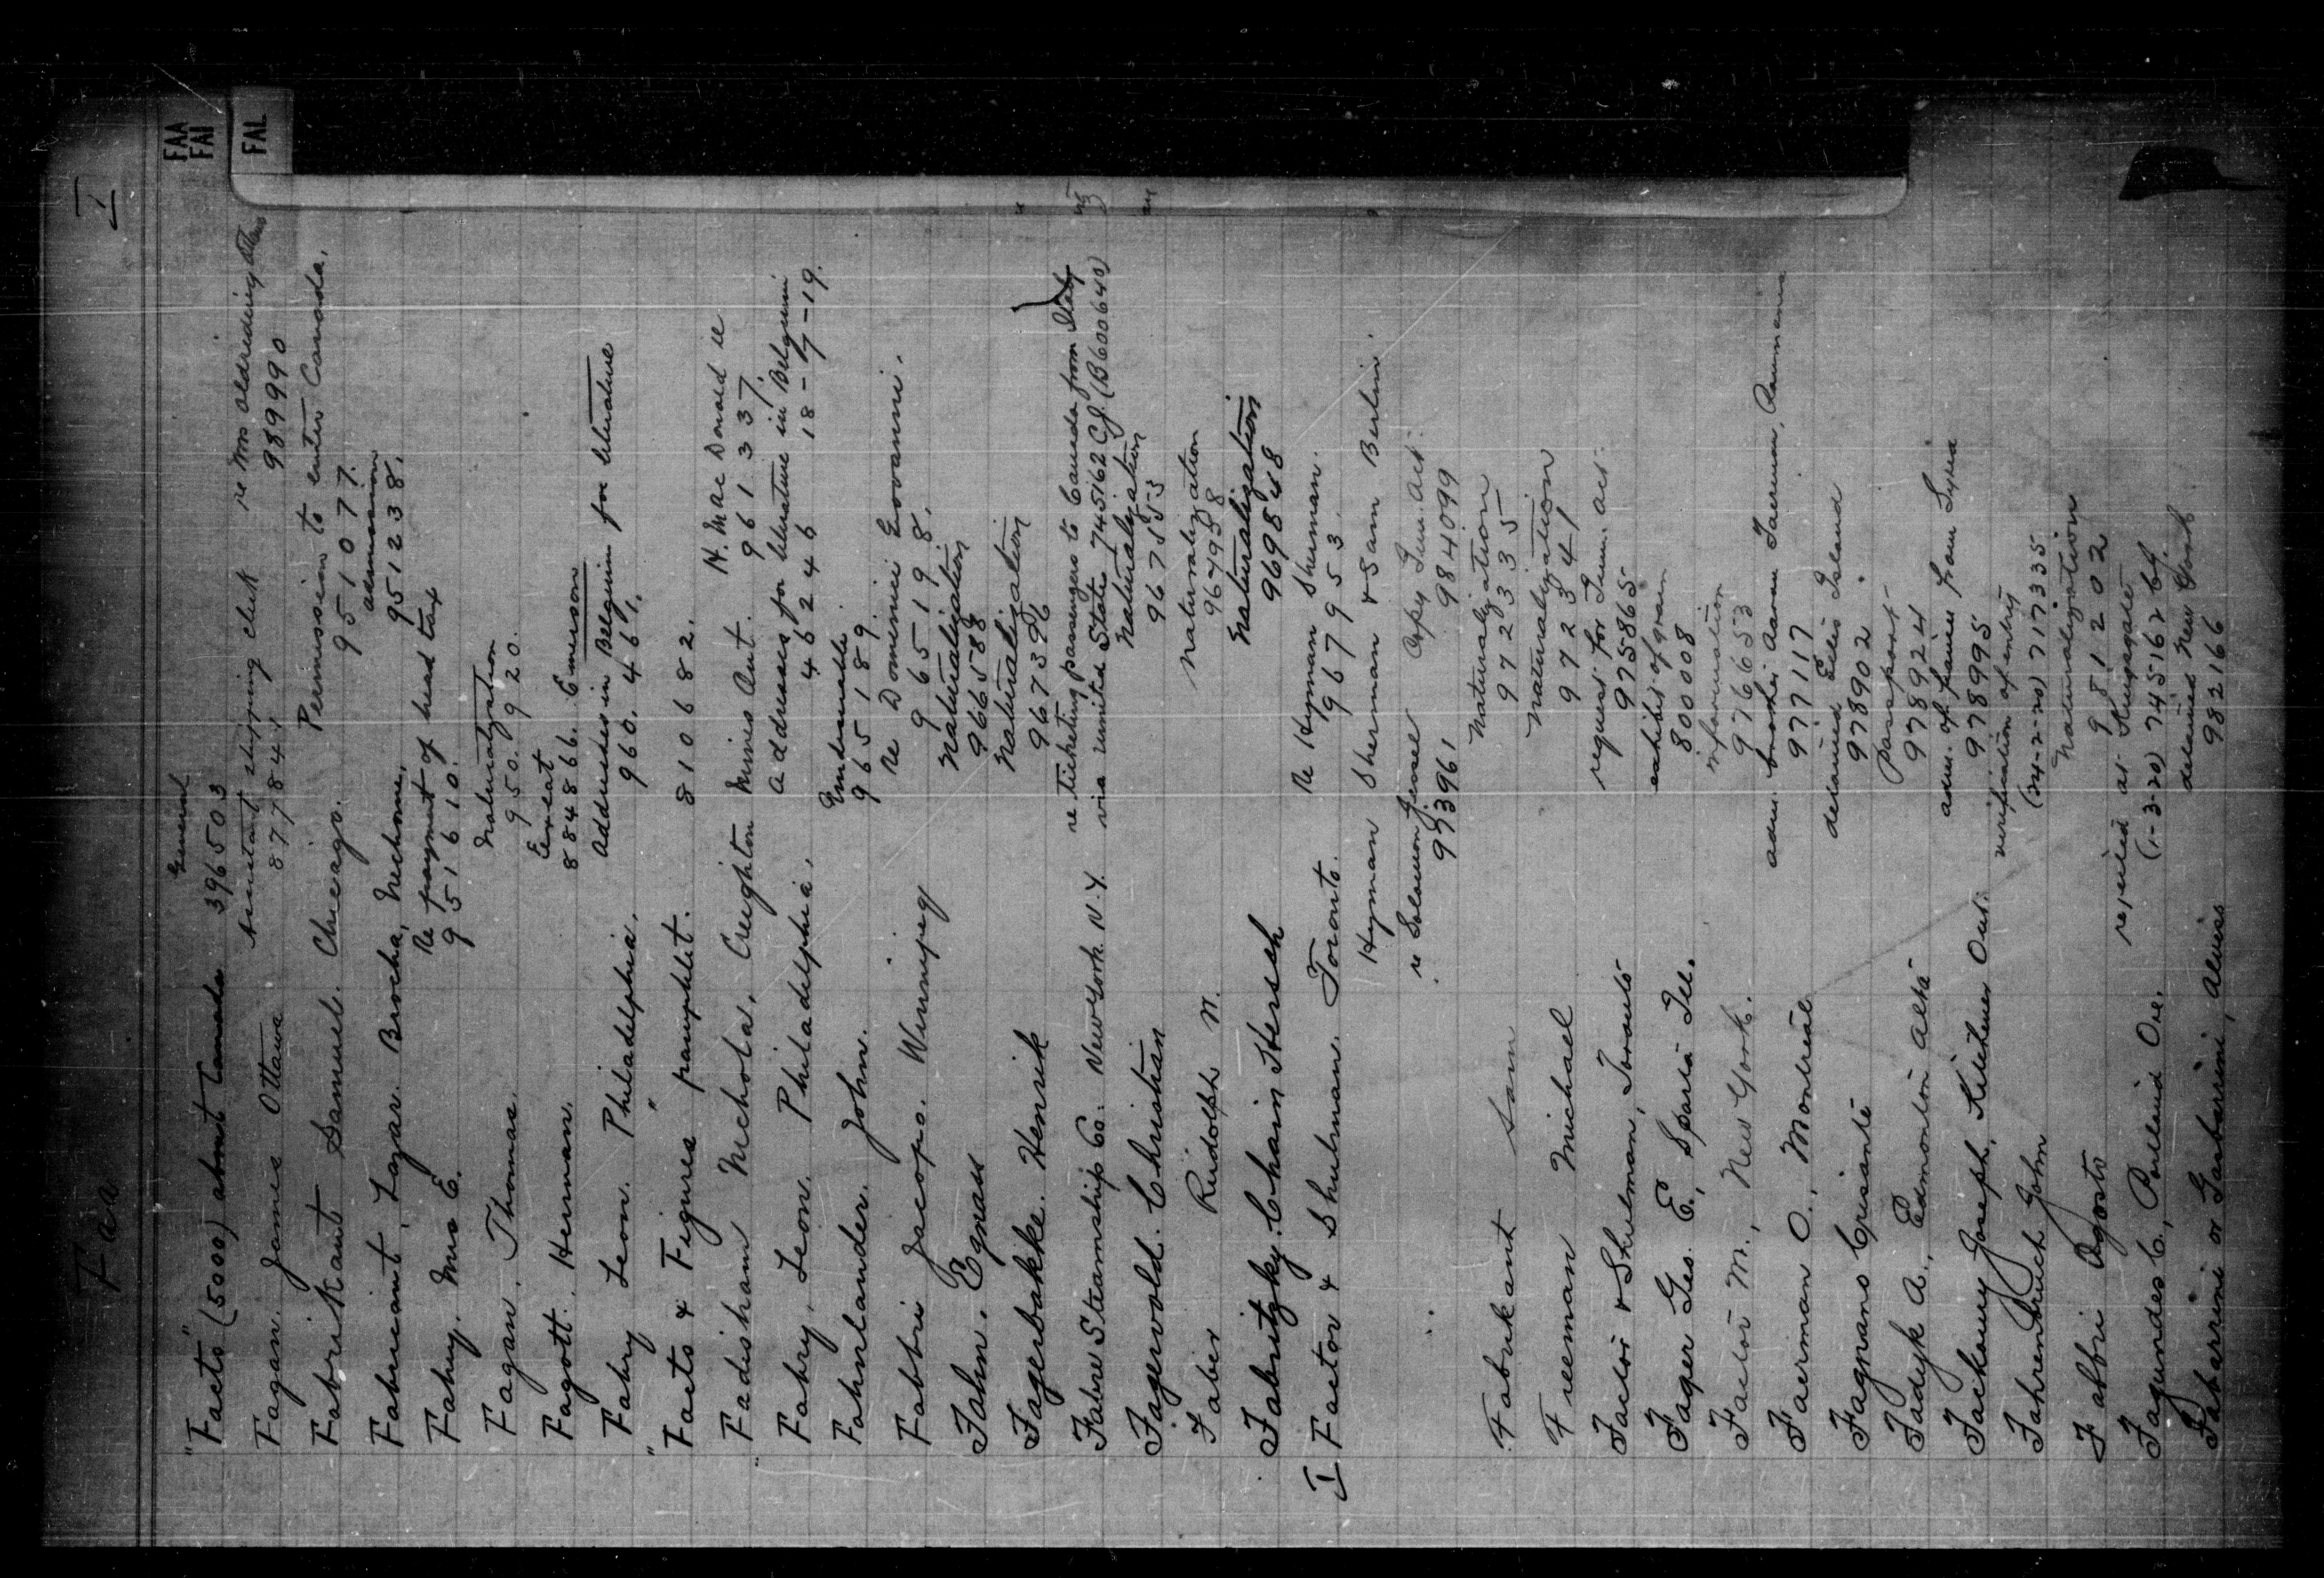 Faa
I
FAA
FAI
FAL
"Facts" (5000) about Canada General 396503
Fagan. James Ottawa Assistant shipping clerk re Mrs
877841 989990
Fabrikant Samuel. Chicago. Permission to enter Canada.
951077.
Fabricant, Lazar. Brocha, Nechome, admission
951238.
Fahey. Mrs E. Re payment of head tax
951610.
Fagan, Thomas. Naturalization
950.920.
Fagott. Herman. Exeat
884866. Emerson
Fahry Leon. Philadelphia. Addresses in Belgium for literature
960.461.
"Facts & Figures" pamphlet. 810682.
Fadisham Nichola, Creighton Mines Ont. H. MacDonald re
961337.
Fahry, Leon. Philadelphia. Addresses for literature in Belguim
46246 18-7-19.
Fahnlander. John. Undesirable
965189.
Fabbri Jacopo. Winnipeg Re Dominic Giovanni.
965198.
Fahn. Egnass Naturalization
966588
Fagerbakke. Henrik Naturalization
967396
Fabre Steamship Co. New York N.Y. re ticketing passengers to Canada from Italy
via United States 745162 C.J. (B600640)
Fagervold. Christian Naturalization
967553
Faber Rudolph M. Naturalization
967958
Fabritzky. Chain Hersch Naturalization
969848
I Factor & Shulman. Toronto. Re Hyman Sherman.
967953
Hyman Sherman & Sam Berlin.
re Solomon Copy Imm. Act.
973961 984099
Fabrikant Sam Naturalization
972335
Freeman Michael Naturalization
972341
Factor & Shulman, Toronto request for Imm. act.
975865
Fager Geo. E., Sparta Ill. exhibit of grain
800008
Factor M., New York. information
976653
Faerman O., Montreal adm. brother Aaron Faerman, Roumania
977117
Fagnano Crisante detained Ellis Island
978902
Fadyk A., Edmonton Alta passport
978924
Fackoury Joseph, Kitchener Ont. adm. of family from Syria
978995
Fahrenbruch John verification of entry
(24-2-20) 717335
Fabbri Agosto Naturalization
981202
Fagundes C., Portland Ore. rejected at
(1-3-20) 745162
Fabarrini or Gasbarrini, Alviss detained New York
982166